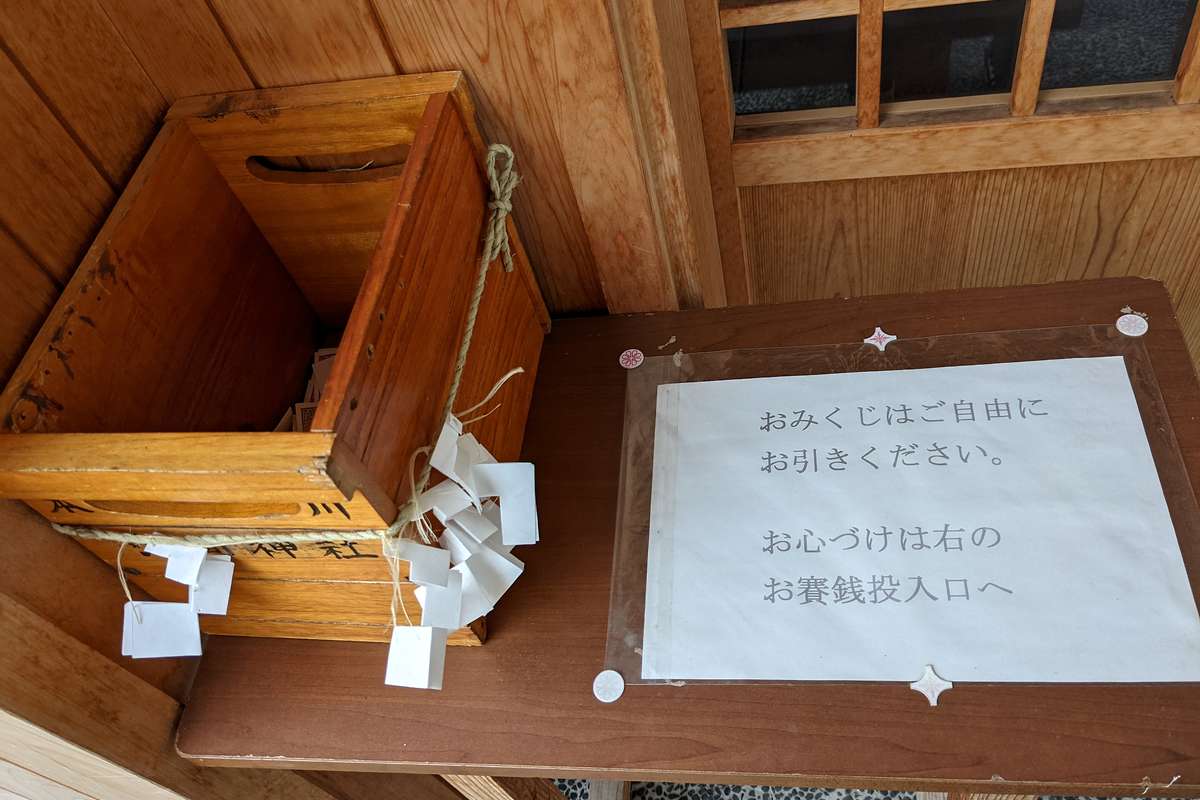 川
神社
おみくじはご自由に
お引きください。
お心づけは右の
お賽銭投入口へ